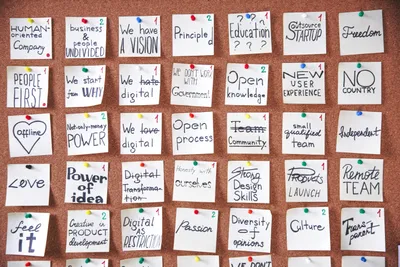 HUMAN-
oriented
Company
1
business
& people
UNDIVIDED
2
We have
A VISION
1
Principle
2
Education
? ? ?
2
Outsource
STARTUP
1
Freedom
PEOPLE
FIRST
1
We start
for WHY
We hate
digital
We DON'T work
with
Government
Open
knowledge
2
NEW
USER
EXPERIENCE
1
NO
COUNTRY
Offline
Not-only-money
POWER
2
We love
digital
Open
process
Team
Community
small
qualified
Team
Independent
Love
Power
of idea
Digital
Transformation
1
Honesty with
ourselves
Strong
Design
Skills
PRODUCTS
LAUNCH
1
REMOTE
TEAM
feel
IT
Creative in
PRODUCT
development
2
Digital
AS
Passion
Diversity
of
opinions
2
Culture
1
Transparent
We DON'T